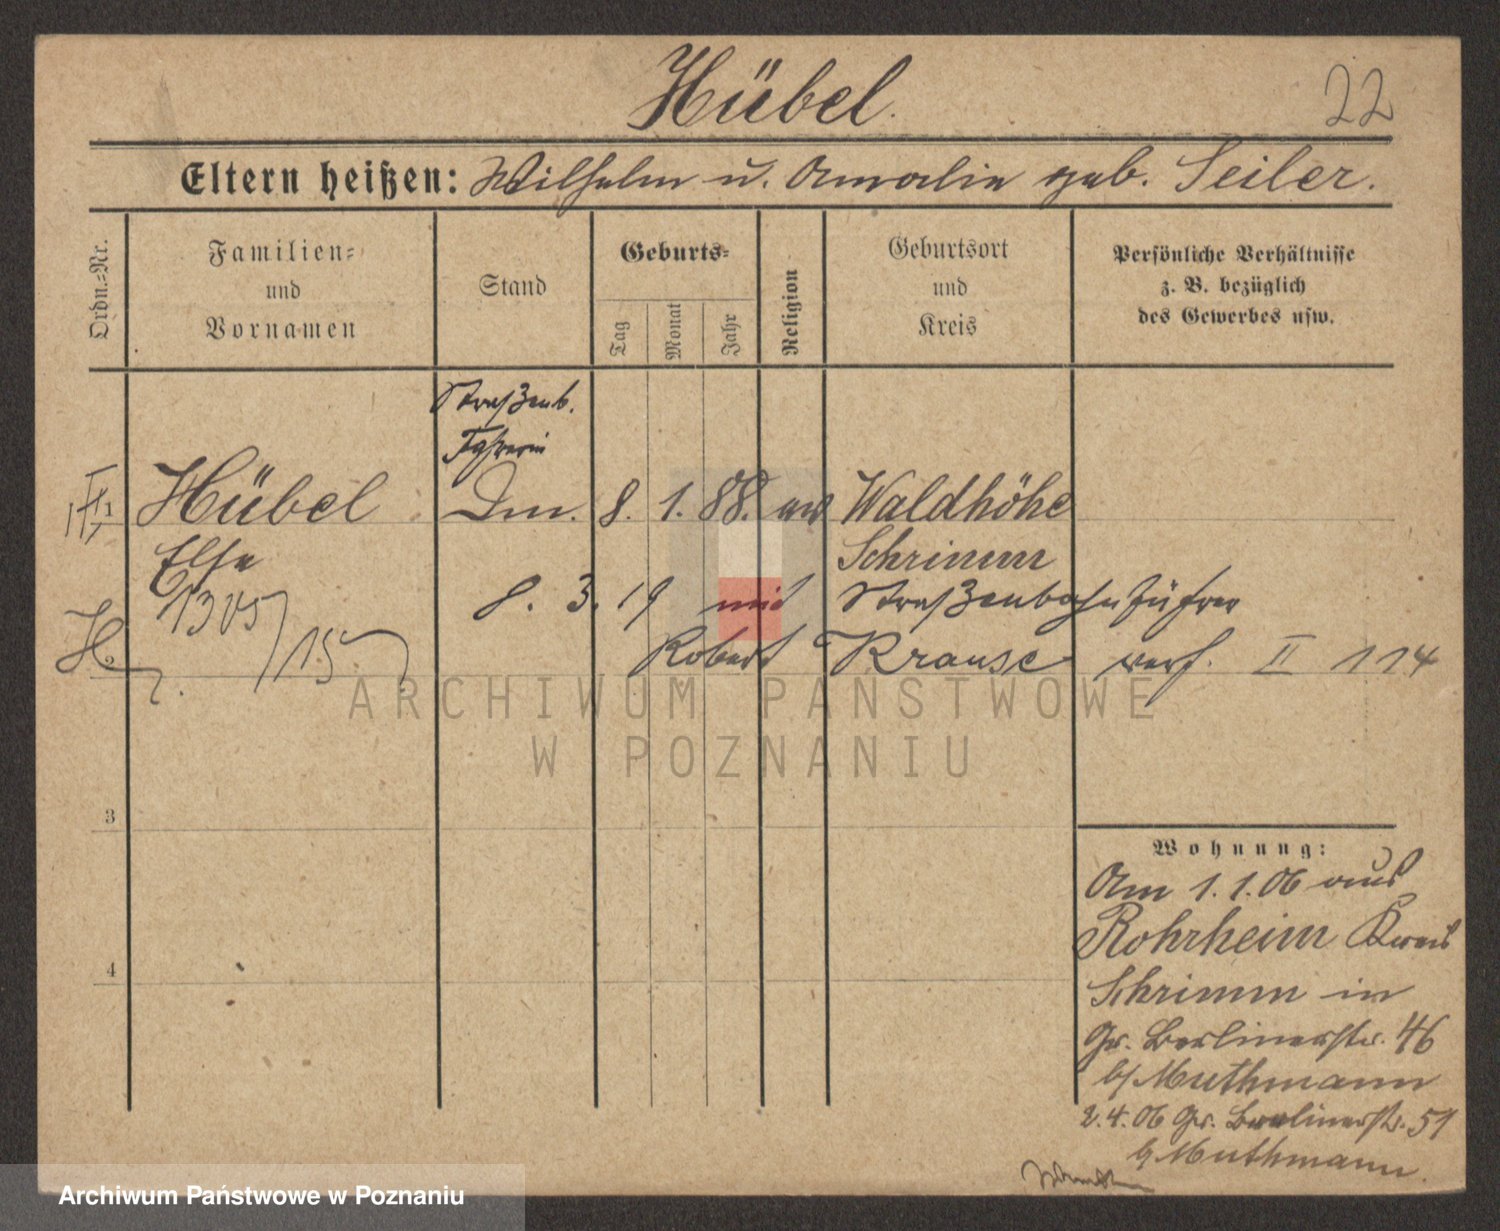 Hübel.
22
Eltern heißen: Wilhelm u. Amalie geb. Seiler.
Ordn.=Nr.
Familien=
und
Vornamen
Stand
Geburts=
Tag
Monat
Jahr
Religion
Geburtsort
und
Kreis
Persönliche Verhältnisse
z. B. bezüglich
des Gewerbes usw.
Straßenb.
Hübel 8. 1. 88. Waldhöhe
Else Schrimm
1305/15
8. 3. 19 mit Straßenbahnführer
Robert Krause verh. II 114
ARCHIWUM PAŃSTWOWE
W POZNANIU
3
4
Wohnung:
Am 1.1.06 aus
Rohrheim Kreis
Schrimm in
Gr. Berlinerstr. 46
b/ Muthmann
2.4.06 Gr. Berlinerstr. 51
b/ Muthmann.
Archiwum Państwowe w Poznaniu